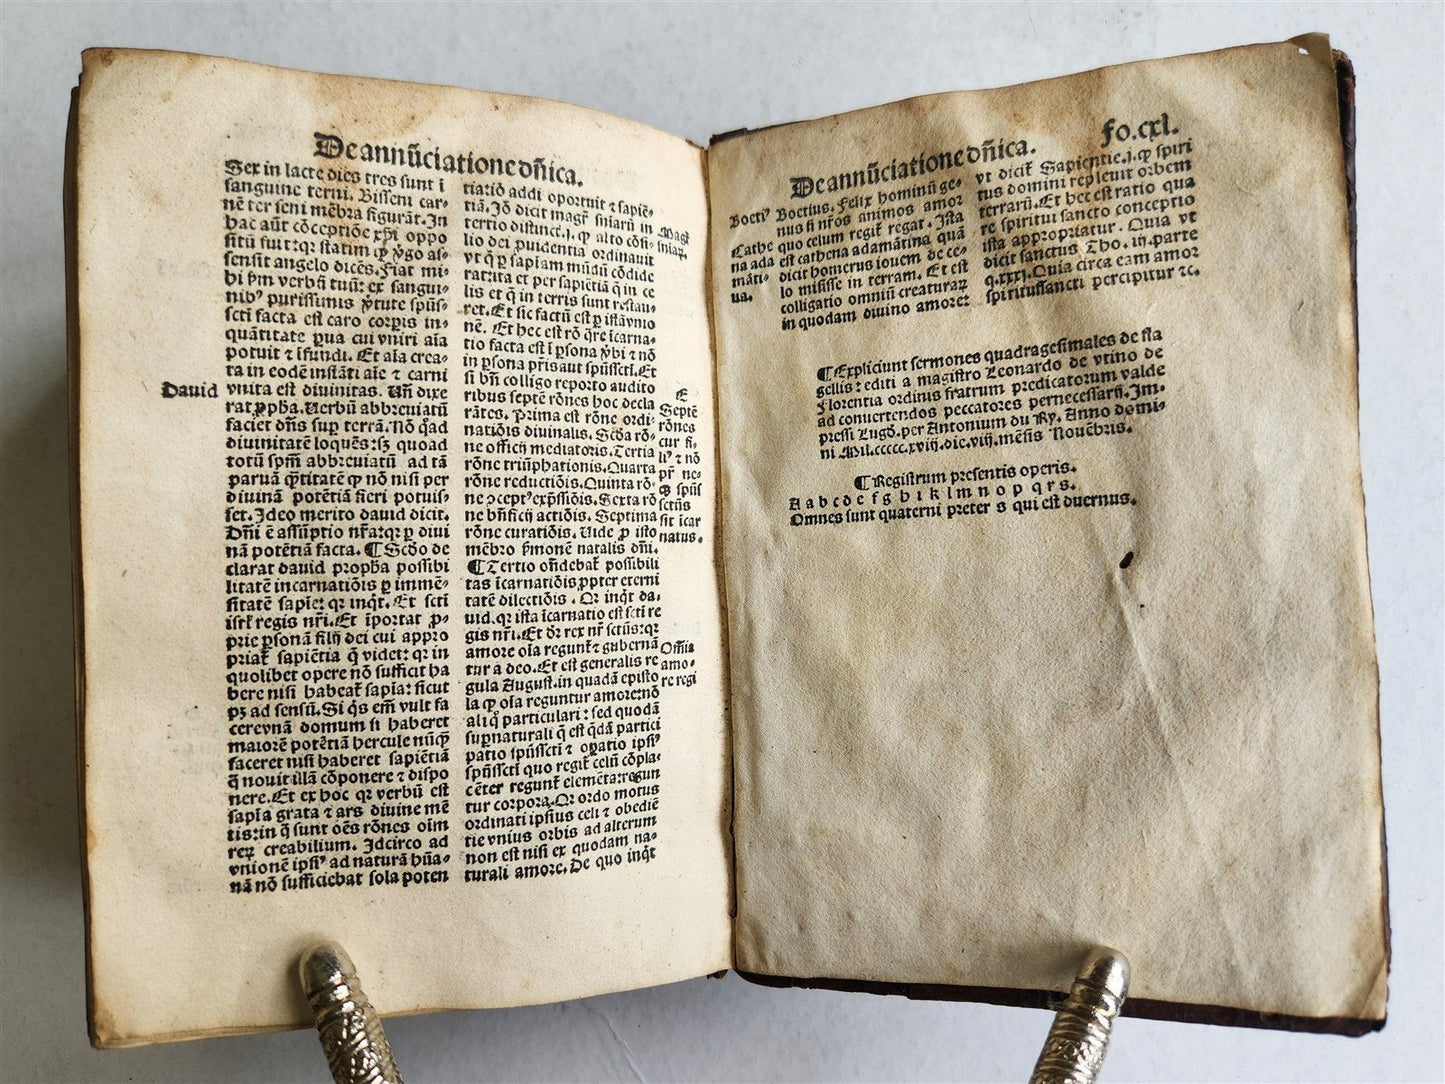 De annũciatione dñica.
Sex in lacte dies tres sunt ĩ
sanguine terni. Bisseni car-
nẽ ter seni mẽbra figurãt. In
hac aũt cõceptiõe xp̃i oppo
situ fuit: qr statim ꝙ ỹgo as-
sensit angelo dicẽs. Fiat mi-
bi ẜm verbũ tuũ: ex sangui-
nibꝰ purissimis ỹtute spũs-
scti facta est caro corꝑis in-
quãtitate ꝓua cui vniri aĩa
potuit ⁊ ĩfundi. Et aĩa crea-
ta in eodẽ instãti aĩe ⁊ carni
David
vnita est diuinitas. Uñ dixe
rat ꝓpħa. Uerbũ abbreuiatũ
faciet dñs suꝑ terrã. Nõ q̃ad
diuinitatẽ loquẽs: sꝫ quoad
totũ spm̃ abbreuiatũ ad tã
paruã q̃titatẽ ꝙ nõ nisi per
diuinã potẽtiã fieri potuis-
set. Ideo merito dauid dicit.
Dñi ẽ assũptio nr̃a: qr ꝑ diui
nã potẽtiã facta. ¶ Scðo de
clarat dauid propħa possibi
litatẽ incarnatiõis ꝑ immẽ-
sitatẽ sapĩe: qr inq̃t. Et scti
isrl̃ regis nr̃i. Et ĩportat ꝓ-
prie ꝑsonã filij dei cui appro
priat̃ sapiẽtia q̃ videt: qr in
quolibet opere nõ sufficit ha
bere nisi habeat̃ sapĩa: sicut
pꝫ ad sensũ. Si q̃s em̃ vult fa
cerevnã domum si haberet
maiorẽ potẽtiã hercule nũꝙ̃
faceret nisi haberet sapiẽtiã
q̃ nouit illã cõponere ⁊ dispo
nere. Et ex hoc qr verbũ est
sapĩa grata ⁊ ars diuine mẽ
tis: in q̃ sunt oẽs rõnes oĩm
reꝝ creabilium. Idcirco ad
vnionẽ ipsiꝰ ad naturã hũa-
nã nõ sufficiebat sola poten
tiatio addi oportuit ⁊ sapiẽ-
tiã. Iõ dicit magr̃ sniarũ in
tertio distinct.j. ꝙ alto cõsi-
lio dei ꝓuidentia ordinauit
vt q̃ ꝑ sapĩam mũdũ cõdide
ratita et per sapiẽtiã q̃ in ce
lis et q̃ in terris sunt restau-
ret. Et sic factũ est ꝑ istã vnio
nẽ. Et hec est rõ q̃re ĩcarna-
tio facta est ĩ ꝑsona ỹbi ⁊ nõ
in ꝑsona pr̃is aut spũsscti. Et
si bñ colligo reporto audito
ribus septẽ rõnes hoc decla
rãtes. Prima est rõne ordi-
natiõis diuinalis. Scða rõ-
ne officij mediatoris. Tertia
rõne triũphationis. Quarta
rõne reductiõis. Quinta rõ-
ne ↄceptꝰ exp̃ssiõis. Sexta rõ
ne bñficij actiõis. Septima
rõne curatiõis. Uide ꝓ isto
mẽbro ẜmonẽ natalis dñi.
¶ Tertio oñdebat̃ possibili
tas ĩcarnatiõis ꝓpter eterni
tatẽ dilectiõis. Qr inq̃t da-
uid. qr ista ĩcarnatio est scti re
gis nr̃i. Et dr̃ rex nr̃ sctũs: qr
amore oĩa regunt̃ ⁊ gubernã
tur a deo. Et est generalis re
gula August. in quadã episto
la ꝙ oĩa reguntur amore: nõ
aliq̃ particulari: sed quodã
suꝑnaturali q̃ est q̃dã partici
patio spũsscti ⁊ oꝑatio ipsiꝰ
spũsscti quo regit̃ celũ cõpla-
cẽter regunt̃ elemẽta: regun
tur corpora. Qr ordo motus
ordinati ipsius celi ⁊ obediẽ
tie vnius orbis ad alterum
non est nisi ex quodam na-
turali amore. De quo inq̃t
Magr̃
sniaꝝ.
E
Septẽ
rõnes
cur fi-
liꝰ ⁊ nõ
pr̃ ne-
ꝙ spũs
sctũs
sit ĩcar
natus.
Om̃ia
amo-
re regi
De annũciatione dñica.
fo.cxl.
Boetiꝰ
Cathe
na ada
mãti-
na.
Boetius. Felix hominũ ge-
nus si nr̃os animos amor
quo celum regit̃ regat. Ista
est cathena adamãtina quã
dicit homerus iouem de ce-
lo misisse in terram. Et est
colligatio omniũ creaturaꝝ
in quodam diuino amore:
vt dicit̃ Sapientie.j. ꝙ spiri
tus domini repleuit orbem
terrarũ. Et hec est ratio qua
re spiritui sancto conceptio
ista appropriatur. Quia vt
dicit sanctus Tho. iij. parte
q.xxxj. Quia circa eam amor
spiritussancti percipitur ⁊c.
¶ Expliciunt sermones quadragesimales de fla
gellis: editi a magistro Leonardo de vtino de
Florentia ordinis fratrum predicatorum valde
ad conuertendos peccatores pernecessarij. Im-
pressi Lugd̃. per Antonium du Ry. Anno domi-
ni Mil.ccccc.xviij. die. viij. mẽsis Nouẽbris.
¶ Registrum presentis operis.
A a b c d e f g h i k l m n o p q r s.
Omnes sunt quaterni preter s qui est duernus.